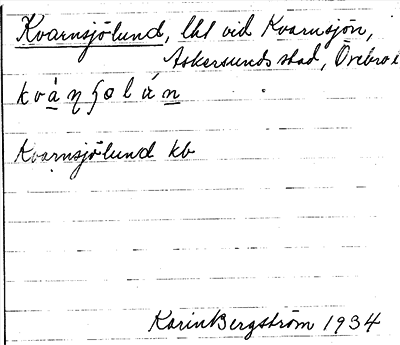 Kvarnsjölund, lht vid Kvarnsjön,
Askersunds stad, Örebro
Kvarnsjölund kb
Karin Bergström 1934